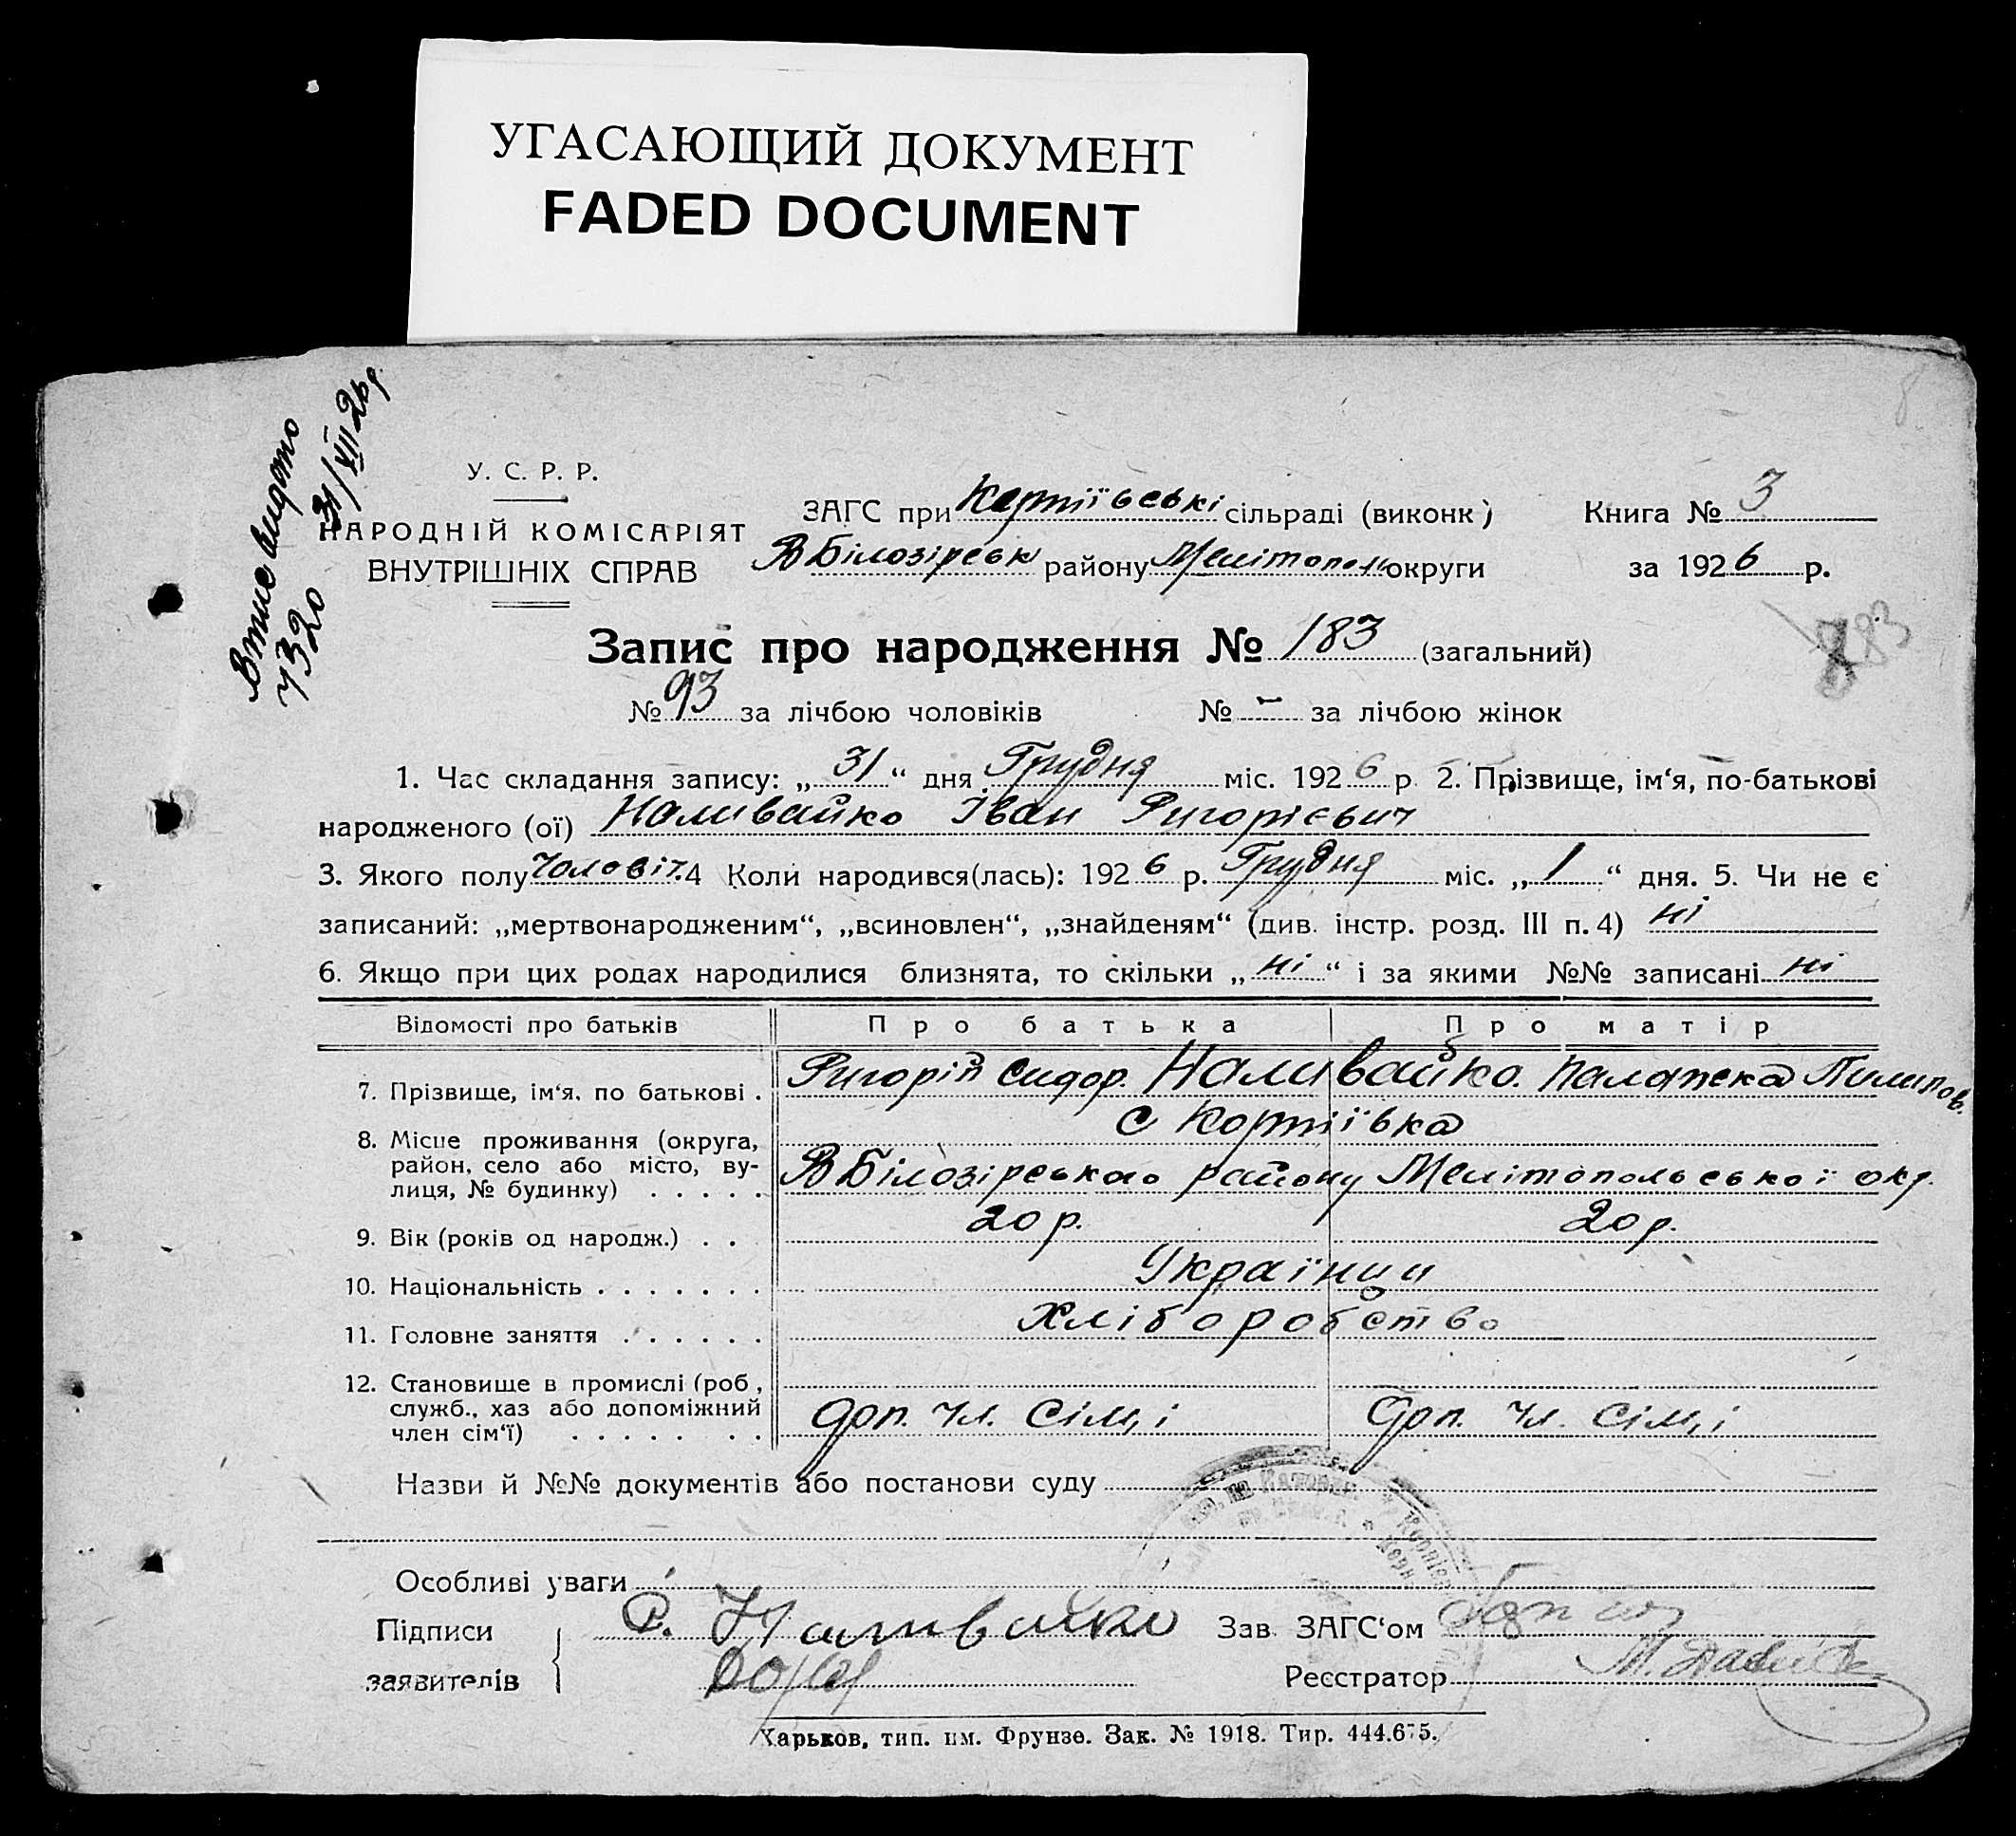 УГАСАЮЩИЙ ДОКУМЕНТ
FADED DOCUMENT
Втис видано
7320
31/XII 26р.
У. С. Р. Р.
НАРОДНІЙ КОМІСАРІЯТ
ВНУТРІШНІХ СПРАВ
ЗАГС при сільраді (виконк)
В Білозірськ району Мелітополь округи
Книга № 3
за 1926 р.
Запис про народження № 183 (загальний)
183
№ 93 за лічбою чоловіків № - за лічбою жінок
1. Час складання запису: „31“ дня Грудня міс. 1926 р. 2. Прізвище, ім‘я, по-батькові
народженого (ої) Наливайко Іван Григорієвич
3. Якого полу чоловіч. 4 Коли народився(лась): 1926 р. Грудня міс. „1“ дня. 5. Чи не є
записаний: „мертвонародженим“, „всиновлен“, „знайденям“ (див. інстр. розд. III п. 4) ні
6. Якщо при цих родах народилися близнята, то скільки „ні“ і за якими №№ записані ні
Відомості про батьків Про батька Про матір
7. Прізвище, ім‘я, по батькові . Григорій Сидор. Наливайко. Палажка Пилипов.
8. Місце проживання (округа,
район, село або місто, ву-
лиця, № будинку) . . . . .
с Кортіївка
В Білозірського району Мелітопольської окр.
9. Вік (років од народж.) . . 20 р. 20 р.
10. Національність . . . . . . . Українци
11. Головне заняття . . . . . . Хліборобство
12. Становище в промислі (роб,
служб., хаз або допоміжний
член сім‘ї) . . . . . . .
доп. чл. сімі доп. чл. сімі
Назви й №№ документів або постанови суду
Особливі уваги
Підписи
заявителів
Г. Наливайко
Зав ЗАГС‘ом
Реєстратор
Харьков, тип. им. Фрунзе. Зак. № 1918. Тир. 444.675.